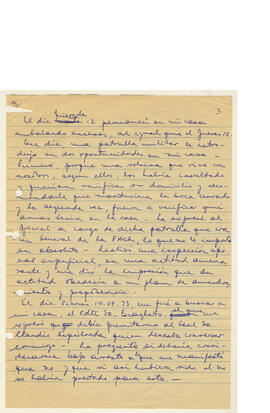 3
Miércoles
El día 12 permanecí en mi casa
embalando enseres, al igual que el Jueves 13.
Ese día, una patrulla militar se intro-
dujo en dos oportunidades en mi casa.-
Primero, porque una sobrina que vive con
nosotros, según ellos, los había insultado
y querían verificar su domicilio y reco-
mendarle que mantuviera la boca cerrada
- la segunda vez fueron a verificar que
armas tenía en la casa.- Le expresé al
Oficial a cargo de dicha patrulla que era
un General de la FACh, lo que no le importó
en absoluto - hicieron una inspección
superficial, en una actitud amena-
zante y me dió la impresión que su
actitud obedecía a un plan de amedren-
tamiento y prepotencia.-
El día Viernes 14.09.73 me fué a buscar a
mi casa, el Cdte Sr.
expresó que debía presentarme al Gral Sr.
Claudio Sepúlveda quien deseaba conversar
conmigo.- Le pregunté si debería consi-
derarme bajo arresto a lo que me manifestó
que no y que si así hubiera sido, él no
se habría prestado para esto.-